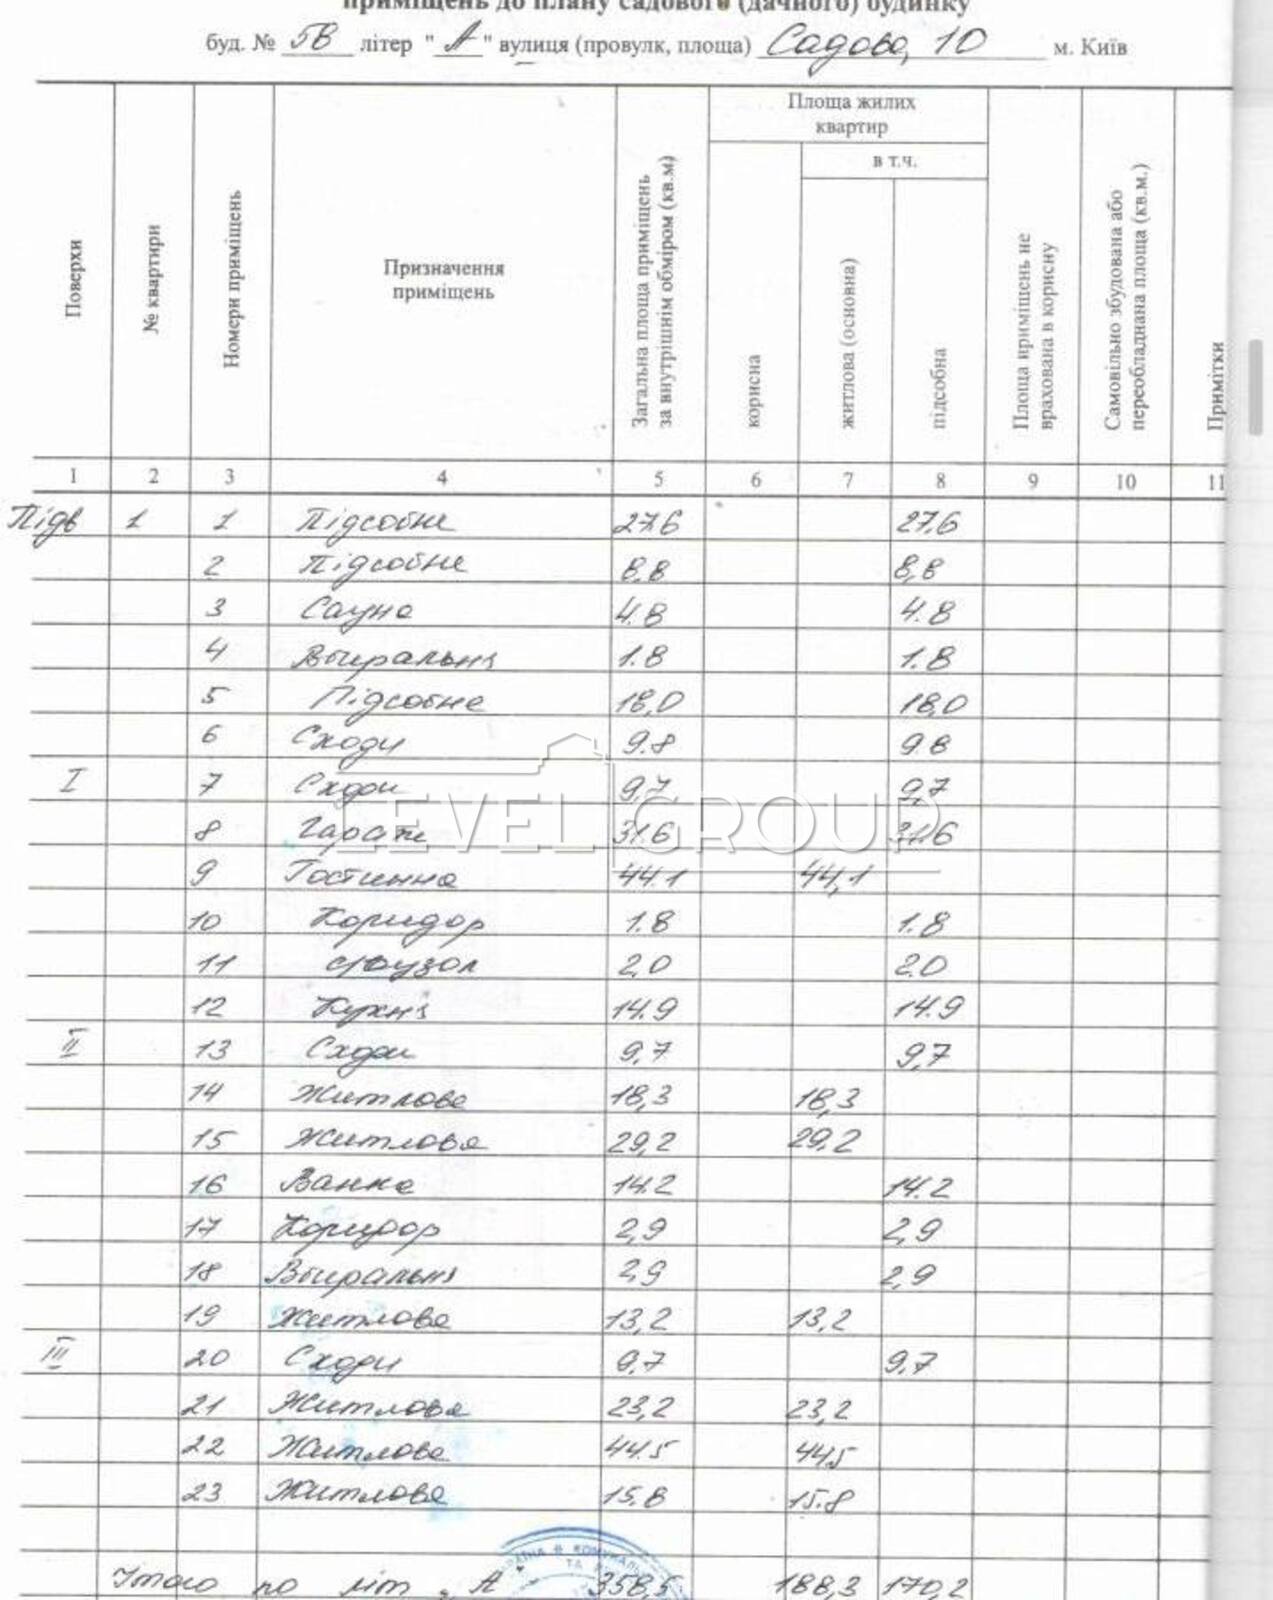 приміщень до плану садового (дачного) будинку
буд. № 5В літер "А" вулиця (провулк, площа) Садова, 10 м. Київ
Поверхи
№ квартири
Номери приміщень
Призначення приміщень
Загальна площа приміщень за внутрішнім обміром (кв.м)
Площа жилих квартир
в т.ч.
корисна
житлова (основна)
підсобна
Площа приміщень не врахована в корисну
Самовільно збудована або переобладнана площа (кв.м.)
Примітки
1 2 3 4 5 6 7 8 9 10 11
Підв 1 1 Підсобне 27.6 27,6
2 Підсобне 8,8 8,8
3 Сауна 4.8 4.8
4 Вбиральня 1.8 1.8
5 Підсобне 18,0 18,0
6 Сходи 9.8 9.8
I 7 Сходи 9,7 9,7
8 Гараж 31.6 31.6
LEVEL GROUP
9 Гостинна 44.1 44,1
10 Коридор 1.8 1.8
11 Санвузол 2,0 2.0
12 Кухня 14.9 14.9
II 13 Сходи 9,7 9,7
14 Житлова 18,3 18,3
15 Житлова 29,2 29,2
16 Ванна 14.2 14.2
17 Коридор 2,9 2,9
18 Вбиральня 2,9 2,9
19 Житлова 13,2 13,2
III 20 Сходи 9.7 9.7
21 Житлова 23,2 23,2
22 Житлова 44.5 44,5
23 Житлова 15.8 15.8
Итого по літ „А" 358,5 188,3 170,2